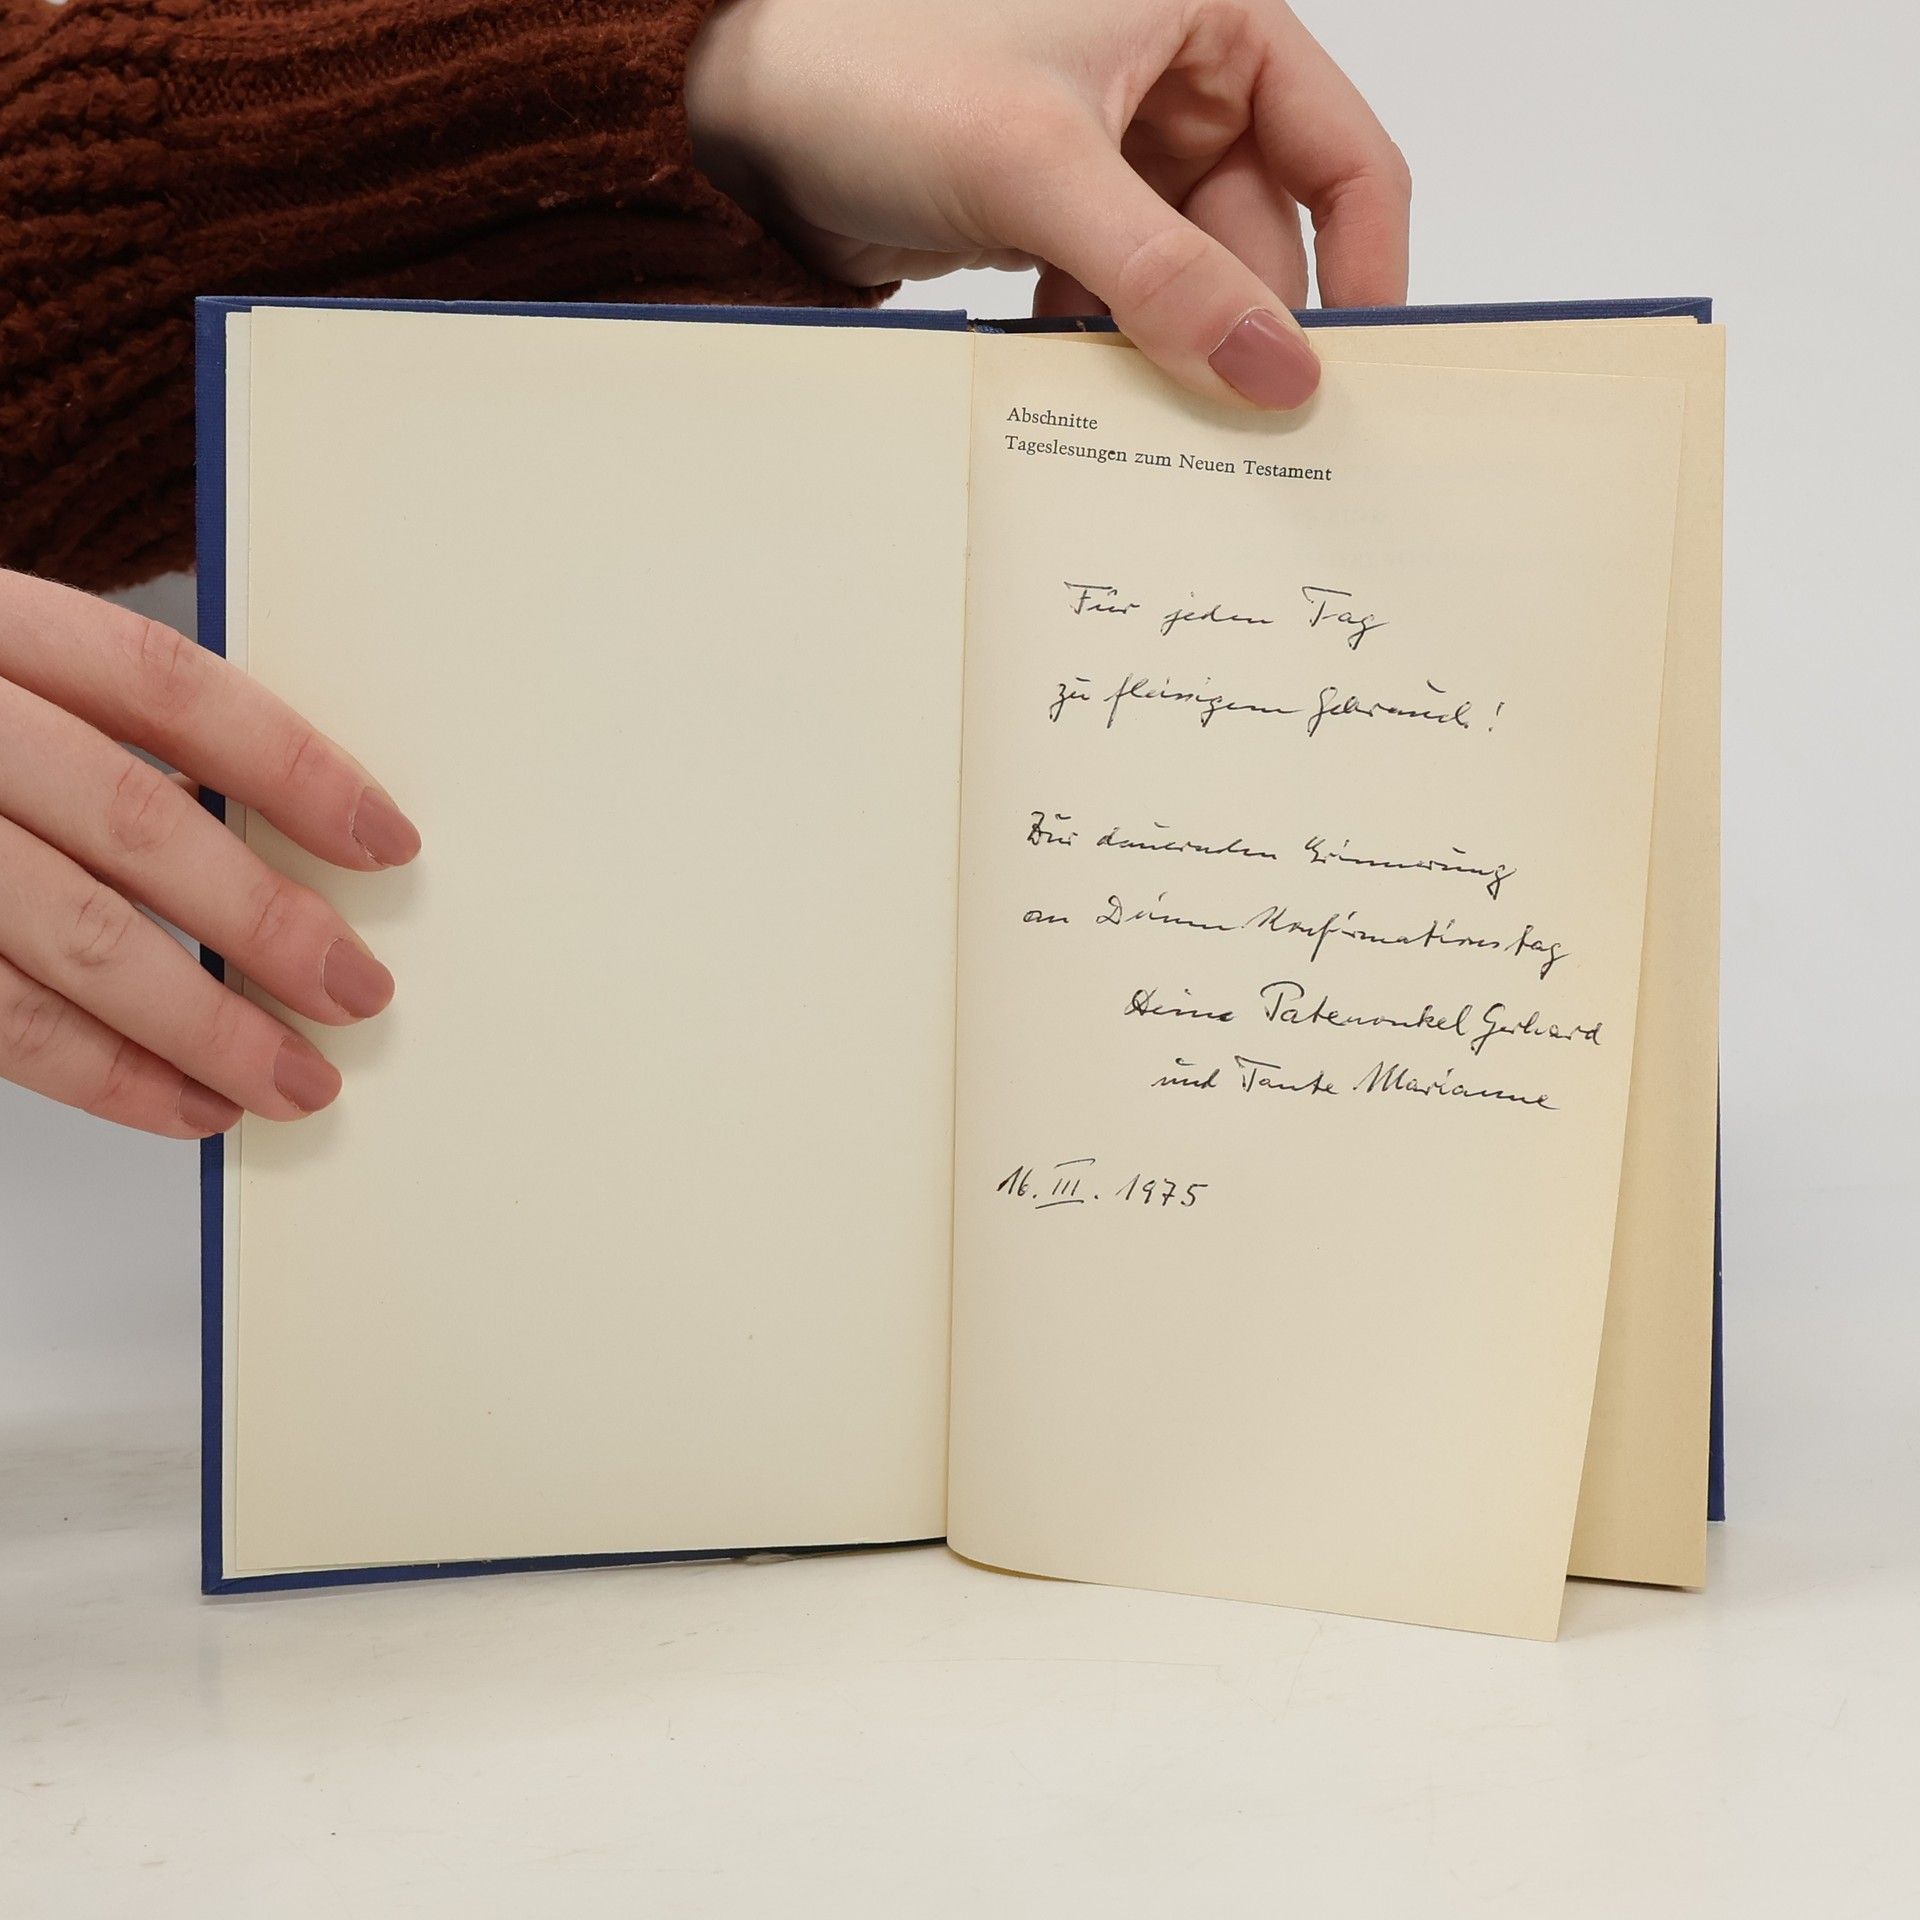 Abschnitte
Tageslesungen zum Neuen Testament
Für jeden Tag
zu fleissigem Gebrauch!
Zur dauernden Erinnerung
an Deinen Konfirmationstag
Deine Patenonkel Gerhard
und Tante Marianne
16. III. 1975